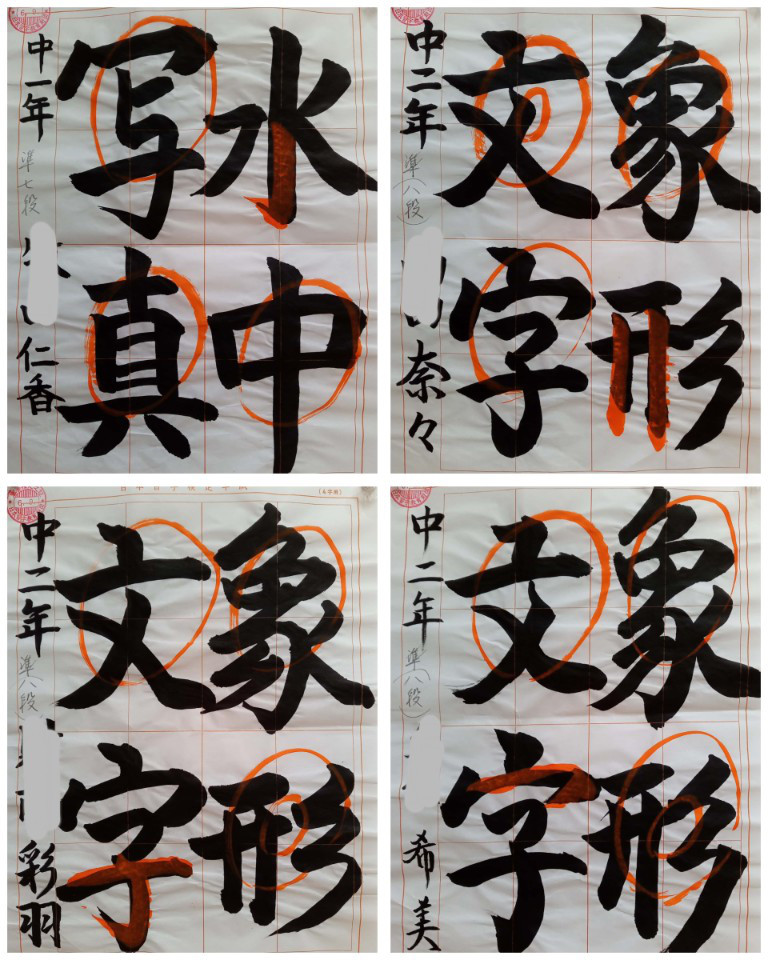 水中
写真
中一年 準七段 仁香
象形
文字
中二年 準(八段) 奈々
象形
文字
中二年 準(八段) 彩羽
象形
文字
中二年 準(八段) 希美